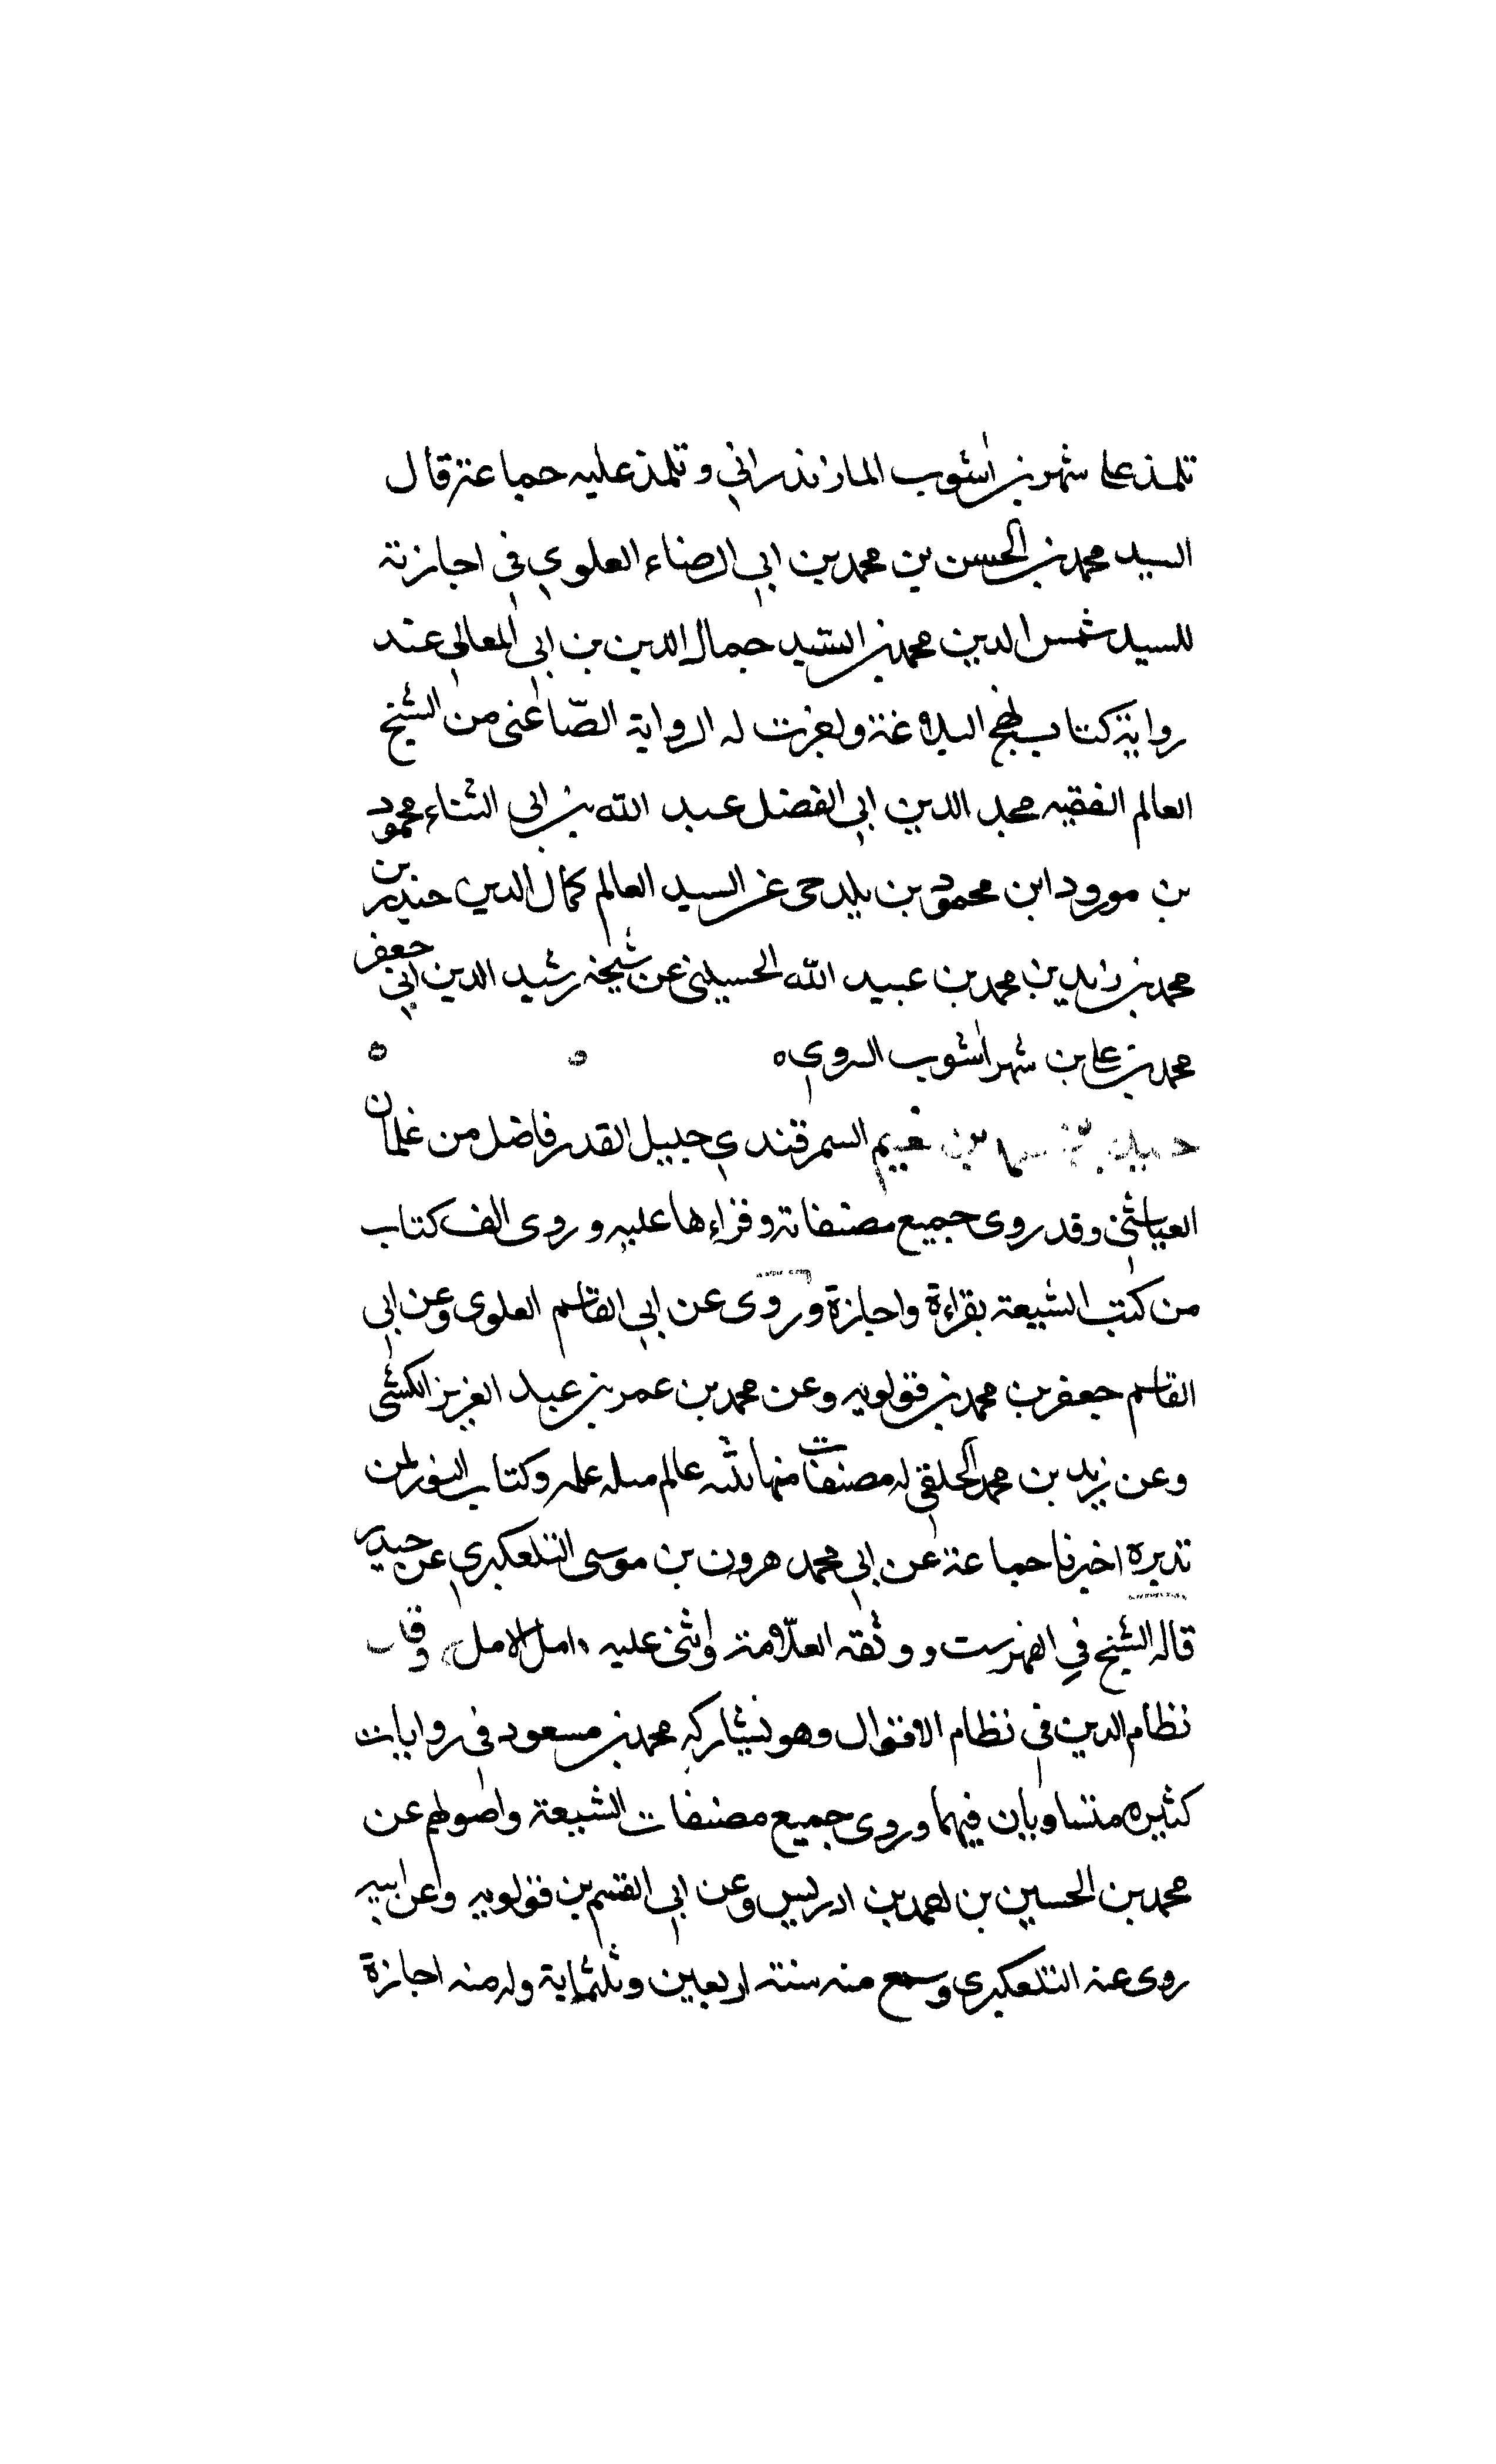 تلمذ على شهر بن اشوب المازندراني وتلمذ عليه جماعة قال
السيد محمد بن الحسن بن محمد بن ابي الرضاء العلوي في اجازته
للسيد شمس الدين محمد بن السيد جمال الدين بن ابي المعالي عند
رواية كتاب نهج البلاغة ولعزت له الرواية الصاغني من الشيخ
العالم الفقيه مجد الدين ابي الفضل عبد الله بن ابي الثناء محمود
بن مورود ابن محمود بن بلدحى عن السيد العالم كمال الدين حيدر بن
محمد بن زايد بن محمد بن عبيد الله الحسيني عن شيخه رشيد الدين ابي جعفر
محمد بن علي بن شهر اشوب السروي ه ه ه
بن نعيم السمرقندي جليل القدر فاضل من غلمان
العياشي وقد روى جميع مصنفاته وقراءها عليه وروى الف كتاب
من كتب الشيعة بقراءة واجازة وروى عن ابي القاسم العلوي وعن ابي
القاسم جعفر بن محمد بن قولويه وعن محمد بن عمر بن عبد العزيز الكشي
وعن زيد بن محمد الحلقي له مصنفات منها عالم علمه وكتاب النور لمن
تدبره اخبرنا جماعة عن ابي محمد هرون بن موسى التلعكبري عن حيدر
قاله الشيخ في الفهرست ووثقه العلامة واثنى عليه امل الامل وقال
نظام الدين في نظام الاقوال وهو يشاركه محمد بن مسعود في روايات
كثيره متساويان فيهما وروى جميع مصنفات الشيعة واصولهم عن
محمد بن الحسين بن احمد بن ادريس وعن ابي القسم بن قولويه وعن ابيه
روى عنه التلعكبري وسمع منه سنة اربعين وثلثماية وله منه اجازة